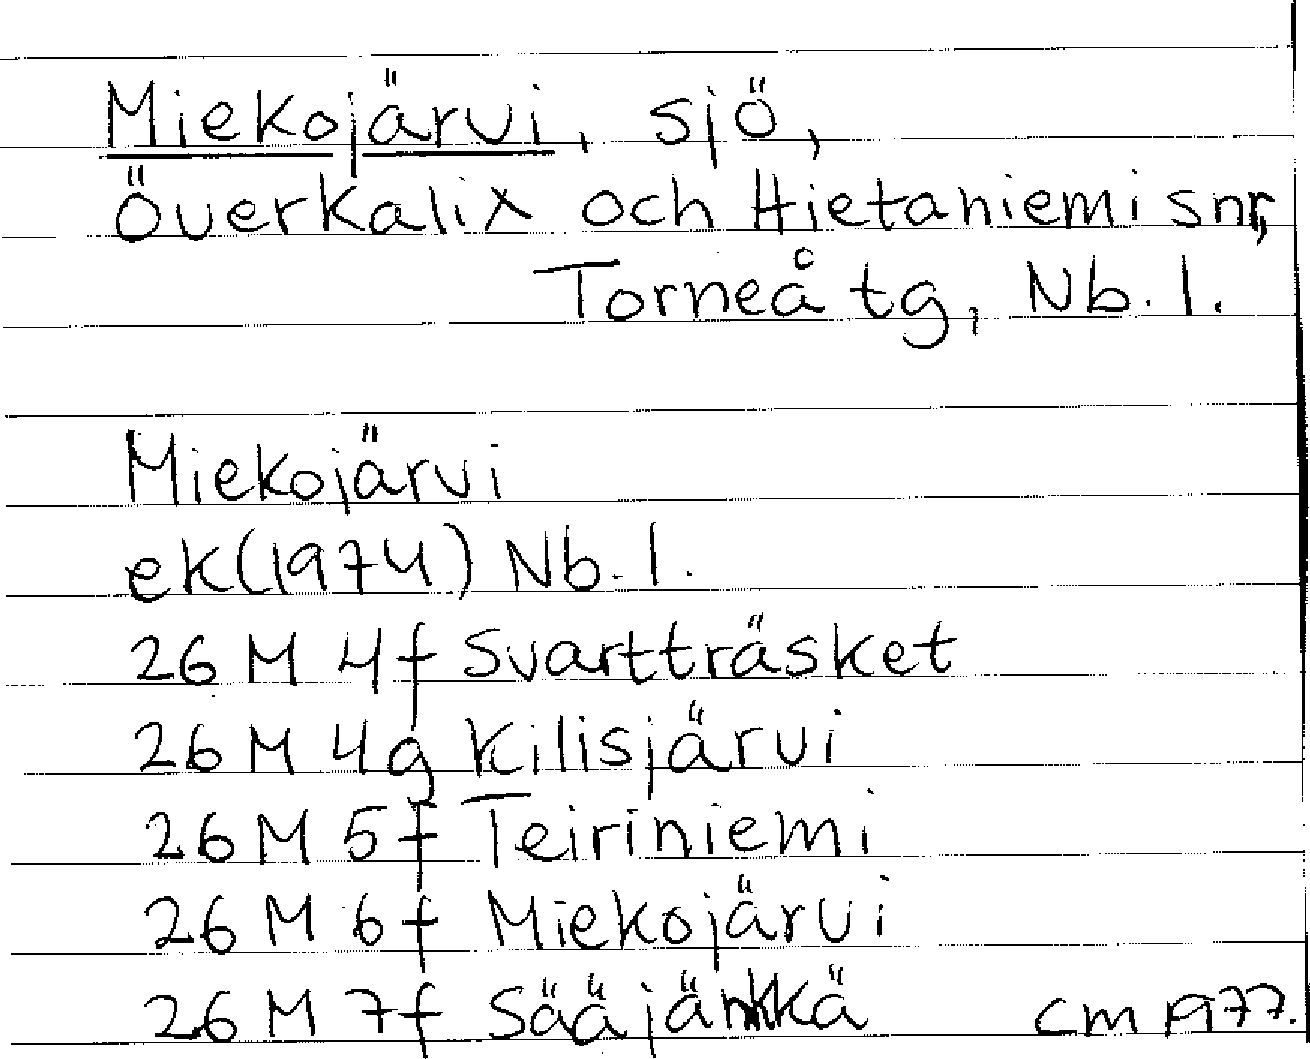 Miekojärvi, sjö,
Överkalix och Hietaniemi snr,
Torneå tg, Nb. l.
Miekojärvi
ek(1974) Nb. l.
26 M 4f Svartträsket
26 M 4g Kilisjärvi
26 M 5f Teiriniemi
26 M 6f Miekojärvi
26 M 7f Sääjänkkä cm 1977.